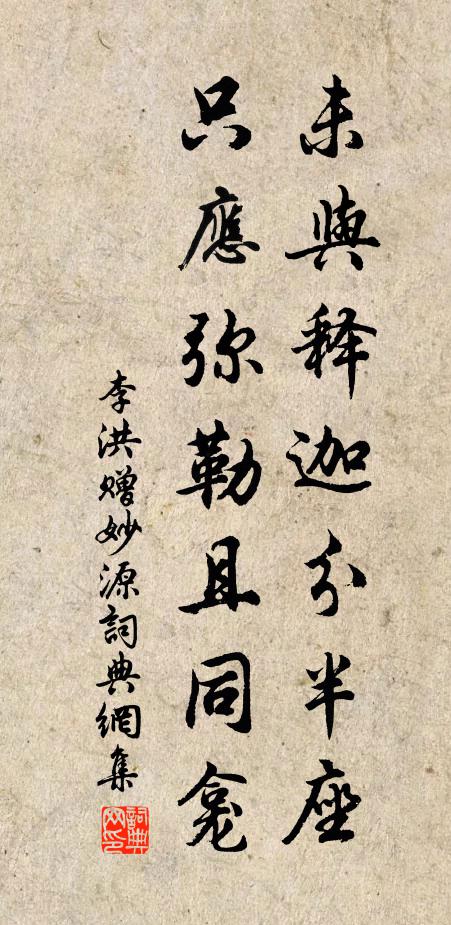 未與释迦分半座
只應弥勒且同龕
李洪贈妙源詞典網集
詞典網印